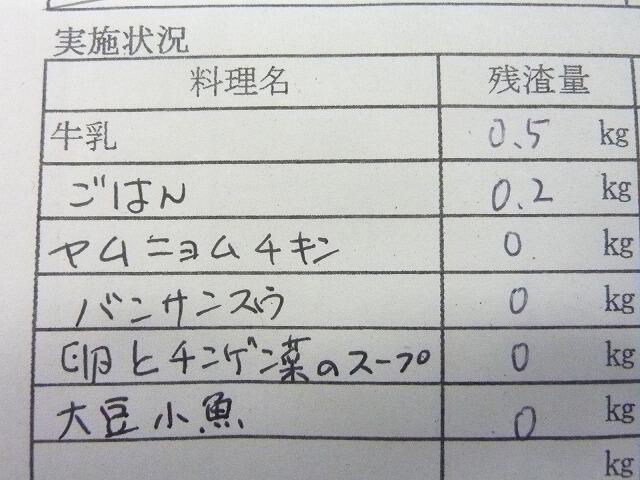 実施状況
料理名 残渣量
牛乳 0.5 kg
ごはん 0.2 kg
ヤムニョムチキン 0 kg
バンサンスウ 0 kg
卵とチンゲン菜のスープ 0 kg
大豆小魚 0 kg
kg